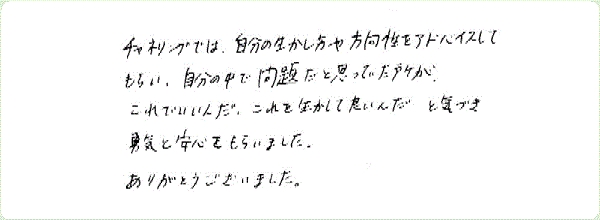 チャネリングでは、自分の生かし方や方向性をアドバイスして
もらい、自分の中で問題だと思っていた所が、
これでいいんだ、これを生かして良いんだ と気づき
勇気と安心をもらいました。
ありがとうございました。